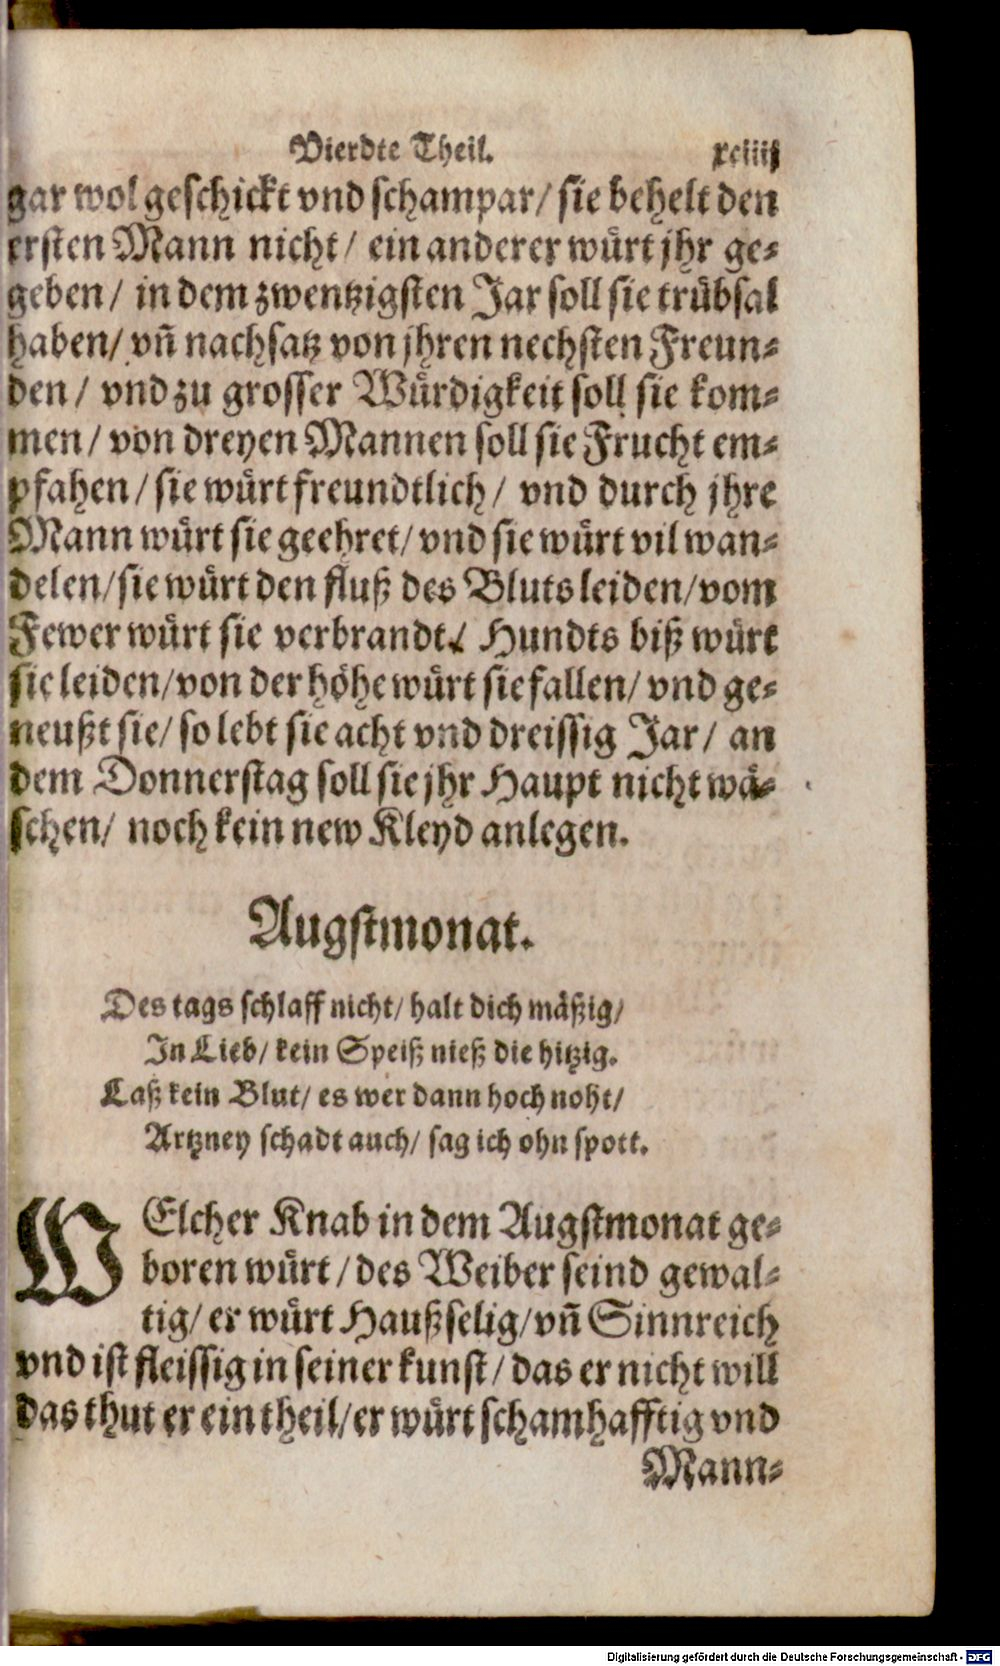 Vierdte Theil. xciiij
gar wol geschickt vnd schampar/ sie behelt den
ersten Mann nicht/ ein anderer wuͤrt jhr ge⸗
geben/ in dem zwentzigsten Jar soll sie truͤbsal
haben/ vñ nachsatz von jhren nechsten Freun⸗
den/ vnd zu grosser Wuͤrdigkeit soll sie kom⸗
men/ von dreyen Mannen soll sie Frucht em⸗
pfahen/ sie wuͤrt freundtlich/ vnd durch jhre
Mann wuͤrt sie geehret/ vnd sie wuͤrt vil wan⸗
delen/ sie wuͤrt den fluß des Bluts leiden/ vom
Fewer wuͤrt sie verbrandt/ Hundts biß wuͤrt
sie leiden/ von der hoͤhe wuͤrt sie fallen/ vnd ge⸗
neußt sie/ so lebt sie acht vnd dreissig Jar/ an
dem Donnerstag soll sie jhr Haupt nicht waͤ⸗
schen/ noch kein new Kleyd anlegen.
Augstmonat.
Des tags schlaff nicht/ halt dich maͤßig/
In Lieb/ kein Speiß nieß die hitzig.
Laß kein Blut/ es wer dann hoch noht/
Artzney schadt auch/ sag ich ohn spott.
WElcher Knab in dem Augstmonat ge⸗
boren wuͤrt/ des Weiber seind gewal⸗
tig/ er wuͤrt Haußselig/ vñ Sinnreich
vnd ist fleissig in seiner kunst/ das er nicht will
das thut er ein theil/ er wuͤrt schamhafftig vnd
Mann⸗
Digitalisierung gefördert durch die Deutsche Forschungsgemeinschaft - DFG